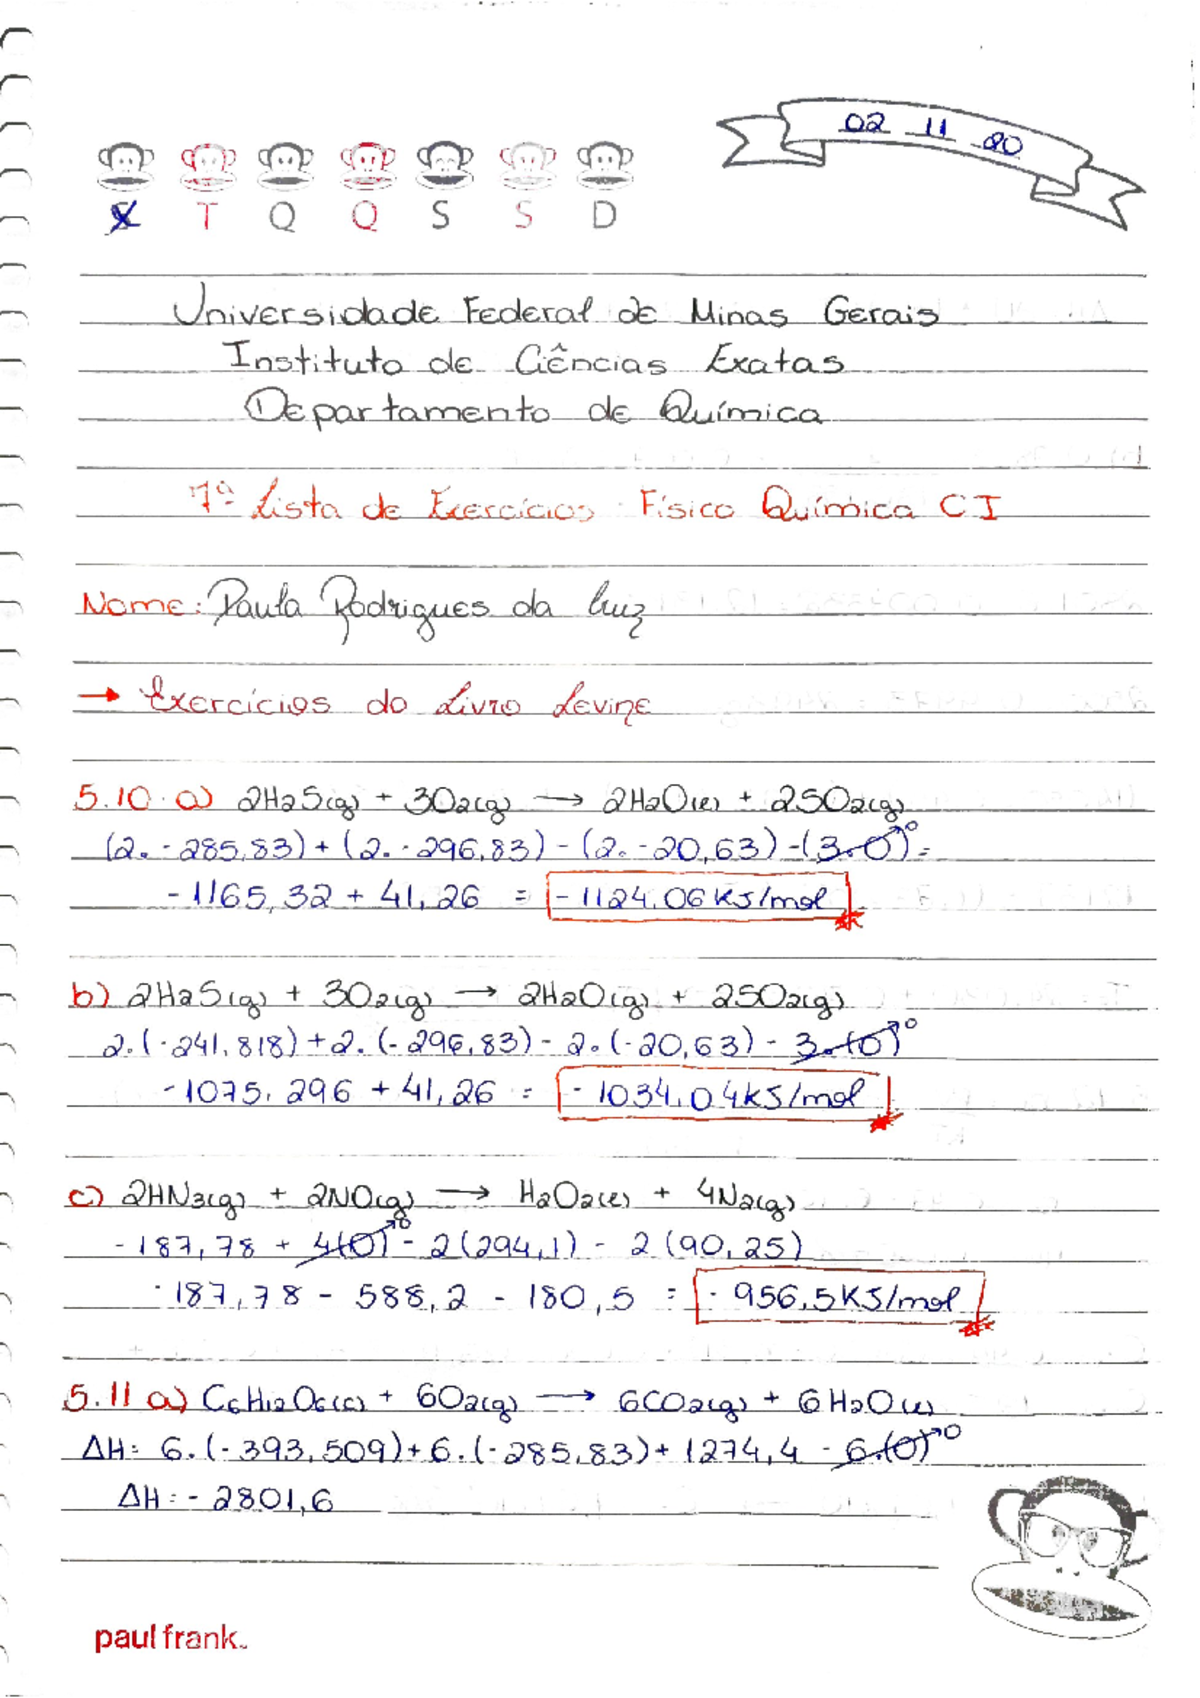 02 11 20
S T Q Q S S D
Universidade Federal de Minas Gerais
Instituto de Ciências Exatas
Departamento de Química
7ª Lista de Exercícios Físico Química CI
Nome: Paula Rodrigues da Luz
→ Exercícios do Livro Levine
5.10 a) 2H2S(g) + 3O2(g) → 2H2O(l) + 2SO2(g)
(2. -285,83) + (2. -296,83) - (2. -20,63) - (3.0)⁰ =
-1165,32 + 41,26 = -1124,06 KJ/mol
b) 2H2S(g) + 3O2(g) → 2H2O(g) + 2SO2(g)
2.(-241,818) + 2.(-296,83) - 2.(-20,63) - 3.(0)⁰
-1075,296 + 41,26 = -1034,04 KJ/mol
c) 2HN3(g) + 2NO(g) → H2O2(l) + 4N2(g)
-187,78 + 4(0)⁰ - 2(294,1) - 2(90,25)
-187,78 - 588,2 - 180,5 = -956,5 KJ/mol
5.11 a) C6H12O6(s) + 6O2(g) → 6CO2(g) + 6H2O(l)
ΔH: 6.(-393,509) + 6.(-285,83) + 1274,4 - 6.(0)⁰
ΔH: -2801,6
paul frank.